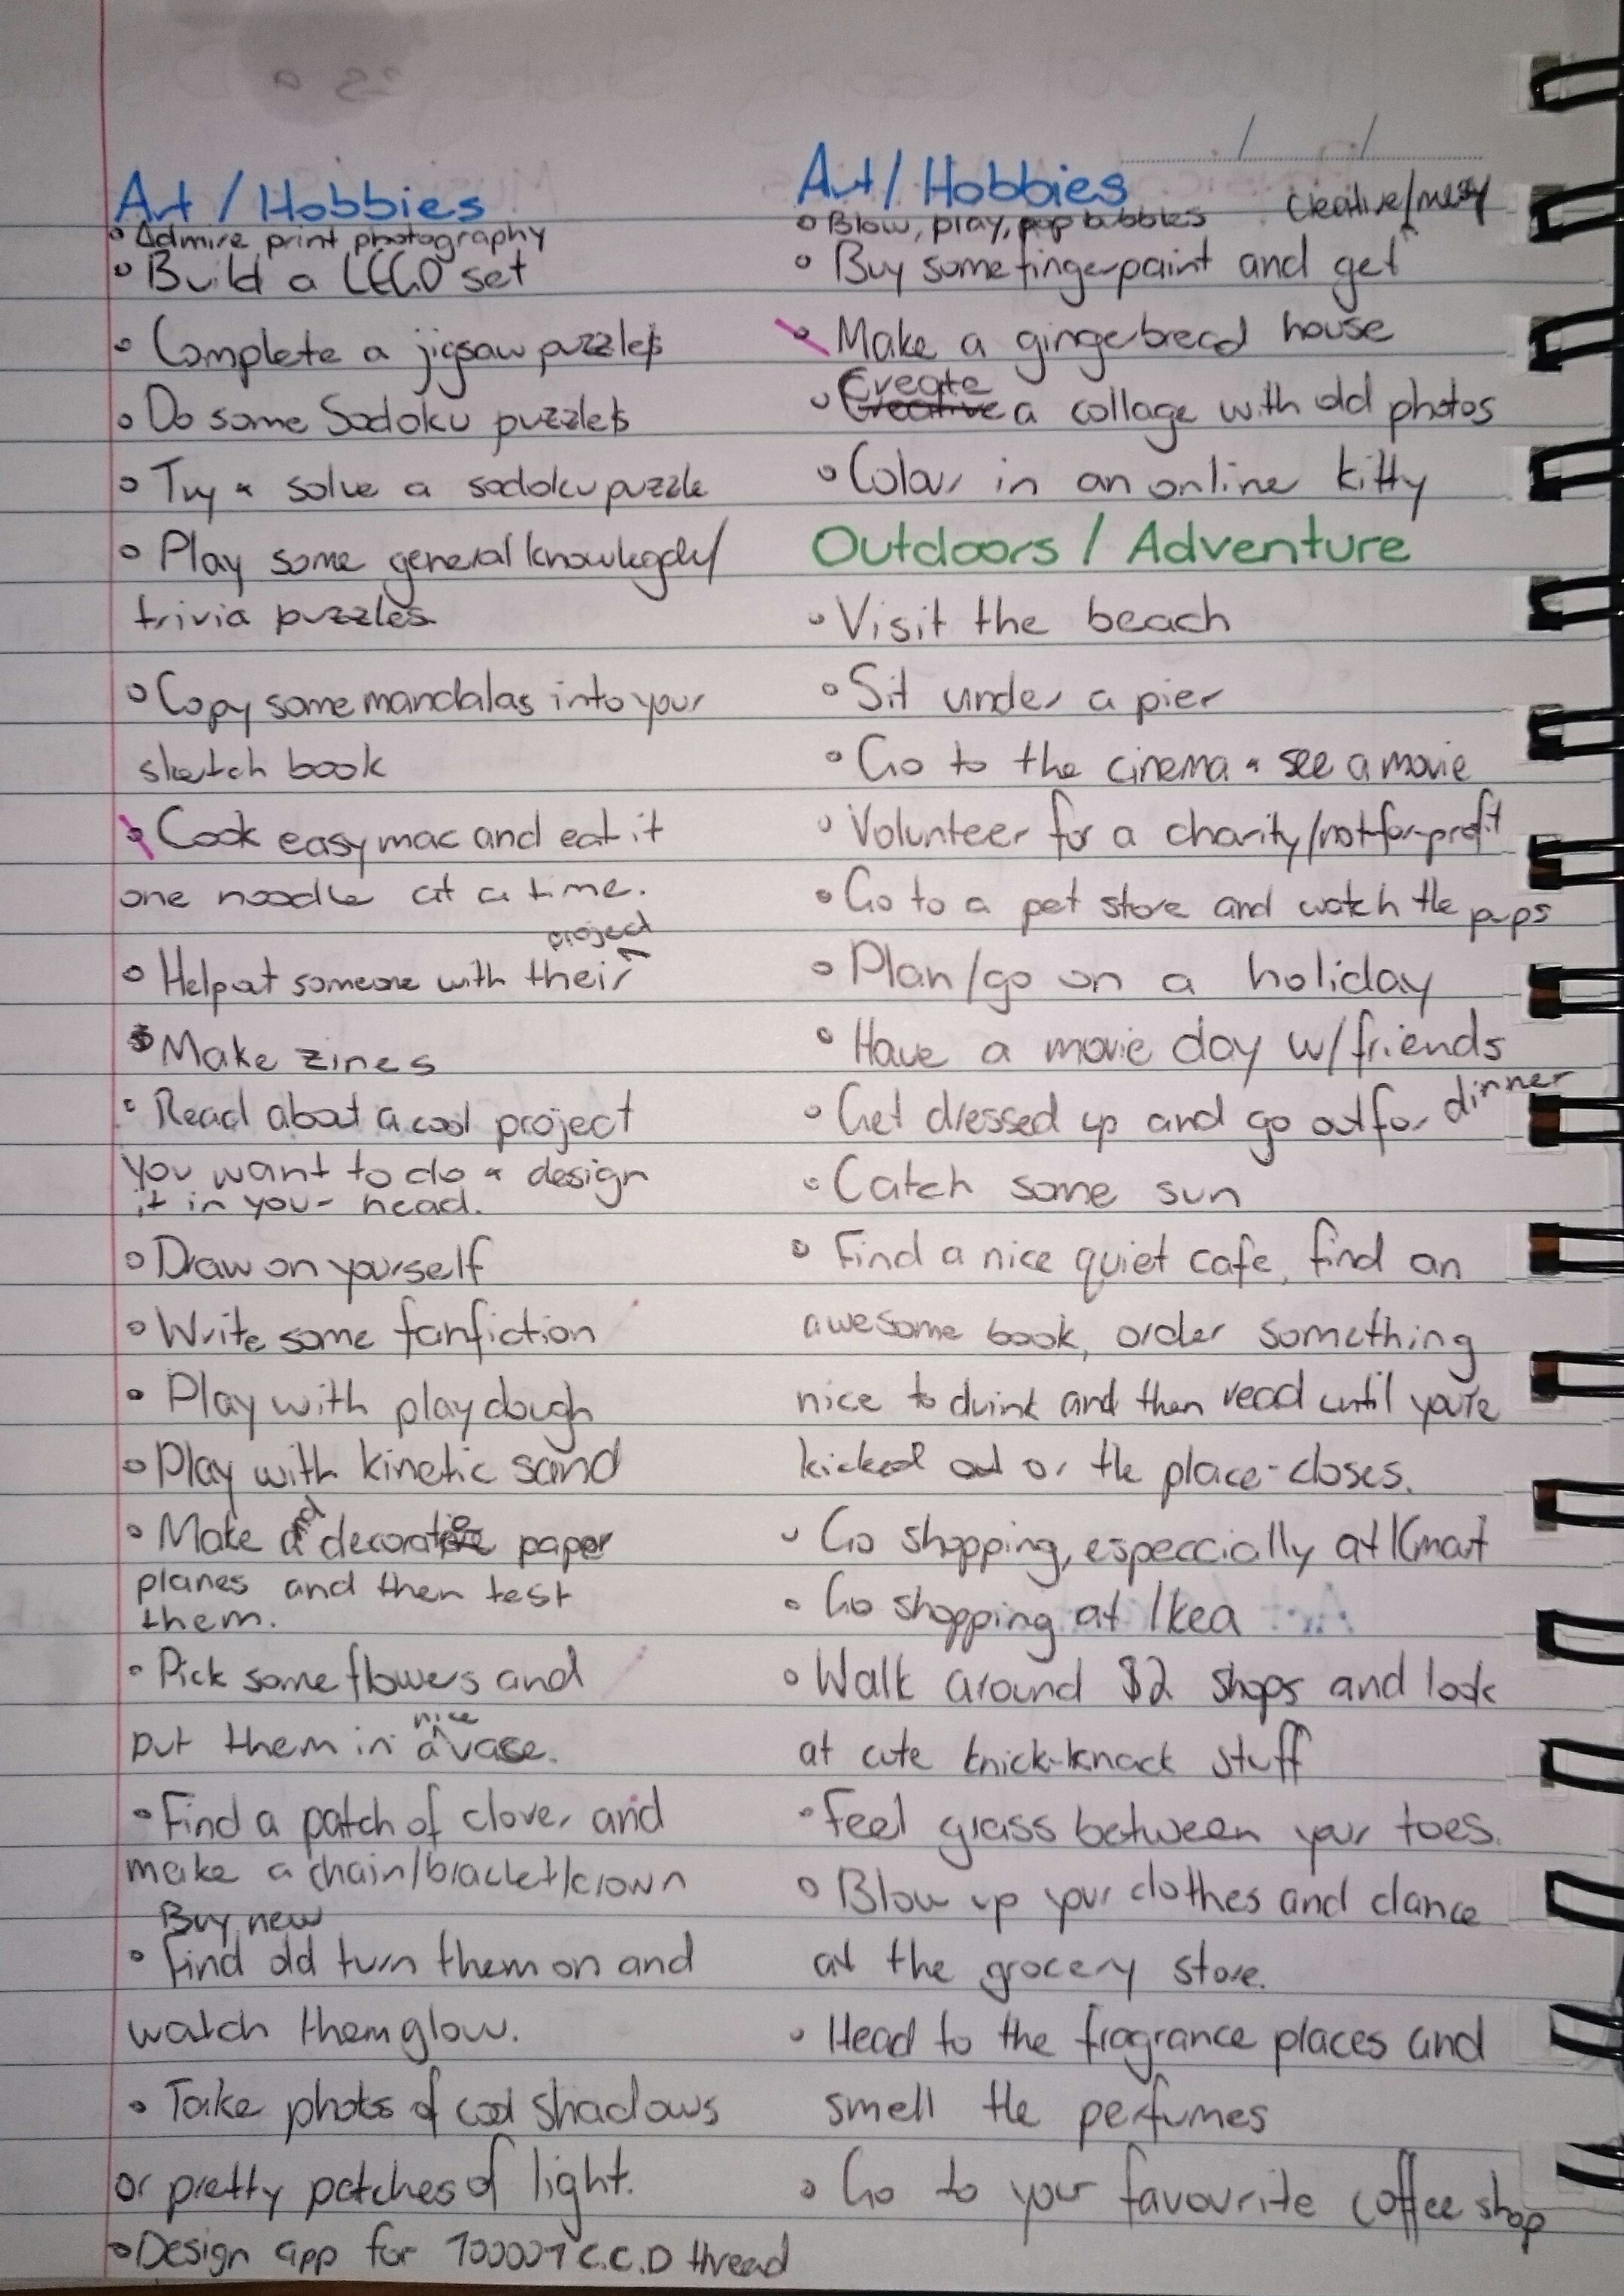 Art / Hobbies
• Admire print photography
• Build a LEGO set
• Complete a jigsaw puzzle
• Do some Sodoku puzzles
• Try & solve a sodoku puzzle
• Play some general knowlegde/
trivia puzzles
• Copy some mandalas into your
sketch book
• Cook easy mac and eat it
one noodle at a time.
project
• Help out someone with their
• Make zines
• Read about a cool project
you want to do & design
it in your head.
• Draw on yourself
• Write some fanfiction
• Play with playdough
• Play with kinetic sand
• Make and decorate paper
planes and then test
them.
• Pick some flowers and
nice
put them in a vase.
• Find a patch of clover and
make a chain/braclet/crown
Buy new
• Find old turn them on and
watch them glow.
• Take photos of cool shadows
or pretty patches of light.
• Design app for 100001 C.C.D thread
Art / Hobbies
• Blow, play, pop bubbles
creative/messy
• Buy some fingerpaint and get
• Make a gingerbread house
Create
• Creative a collage with old photos
• Colour in an online kitty
Outdoors / Adventure
• Visit the beach
• Sit under a pier
• Go to the cinema & see a movie
• Volunteer for a charity/not-for-profit
• Go to a pet store and watch the pups
• Plan/go on a holiday
• Have a movie day w/friends
• Get dressed up and go out for dinner
• Catch some sun
• Find a nice quiet cafe, find an
awesome book, order something
nice to drink and then read until you're
kicked out or the place closes.
• Go shopping, especcially at Kmart
• Go shopping at Ikea
• Walk around $2 shops and look
at cute knick-knack stuff
• Feel grass between your toes.
• Blow up your clothes and dance
at the grocery store.
• Head to the fragrance places and
smell the perfumes
• Go to your favourite coffee shop